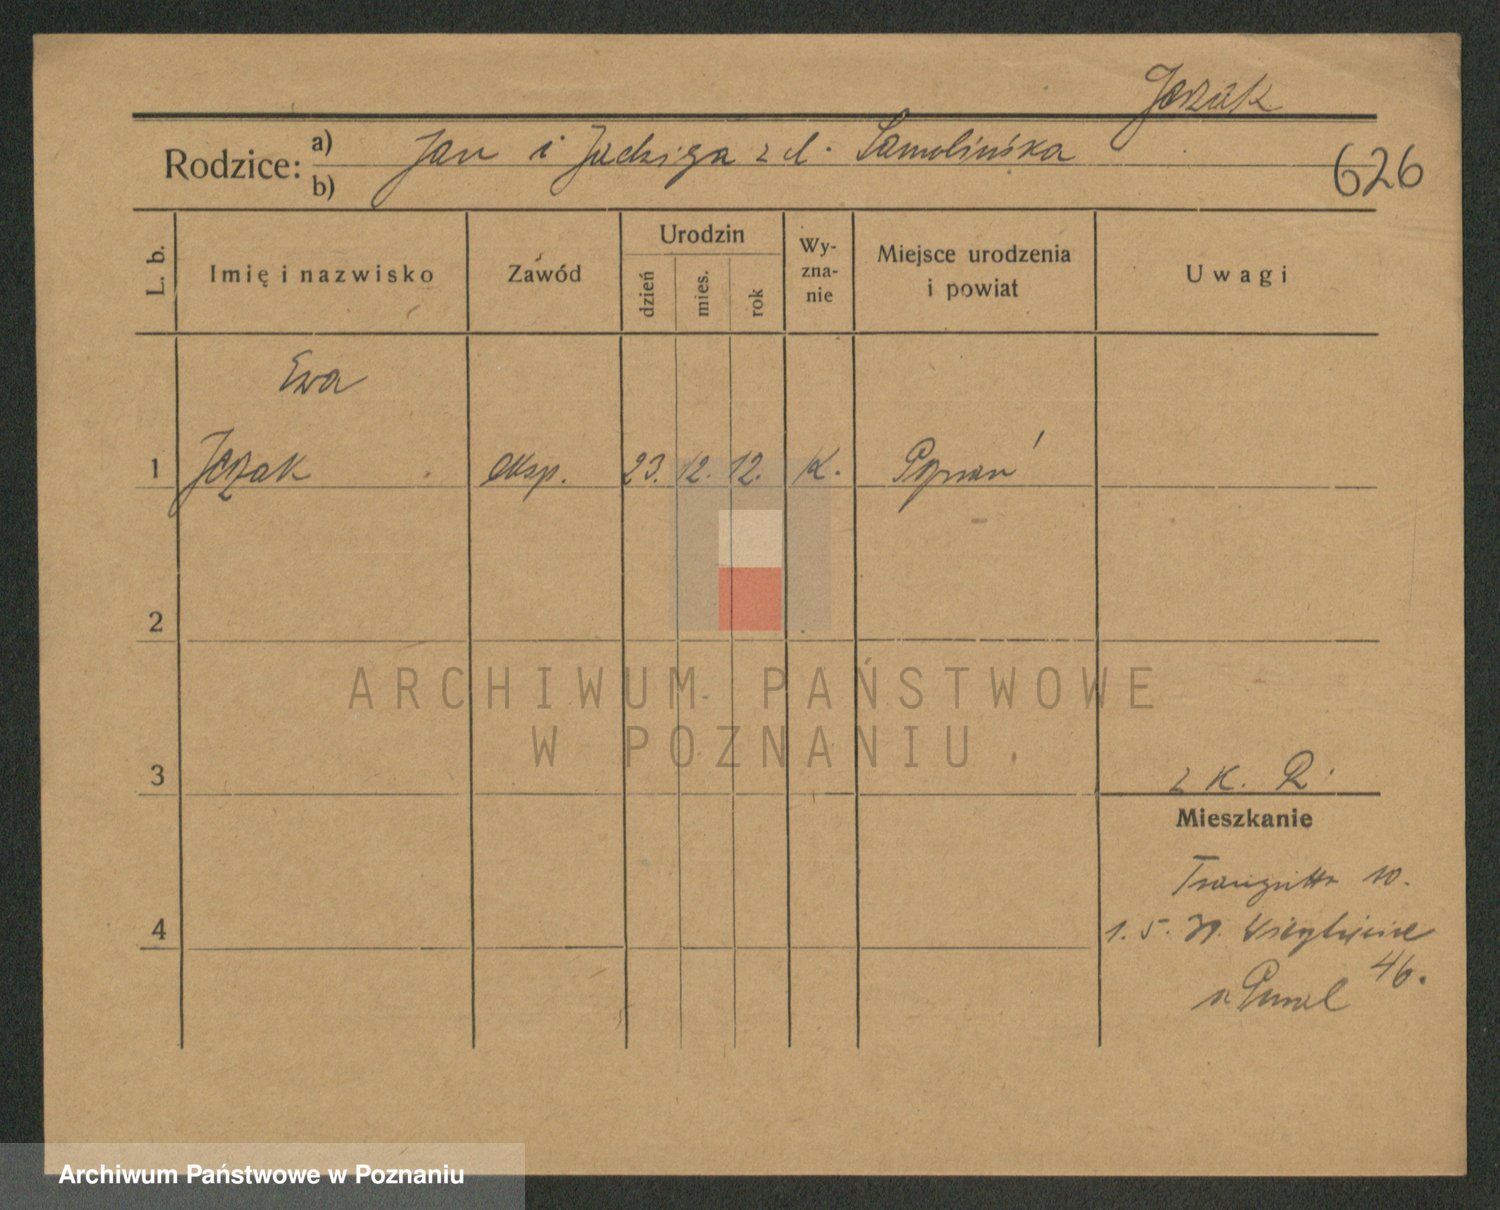 Jerzak
Rodzice: a) b) Jan i Jadwiga z d. Samolińska
626
L. b.
Imię i nazwisko
Zawód
Urodzin
dzień
mies.
rok
Wy-
zna-
nie
Miejsce urodzenia
i powiat
Uwagi
Ewa
1 Jerzak eksp. 23. 12. 12. K. Poznań
2
ARCHIWUM PAŃSTWOWE
W POZNANIU
3
z K. R.
Mieszkanie
10.
4
1. 5.
46.
Archiwum Państwowe w Poznaniu